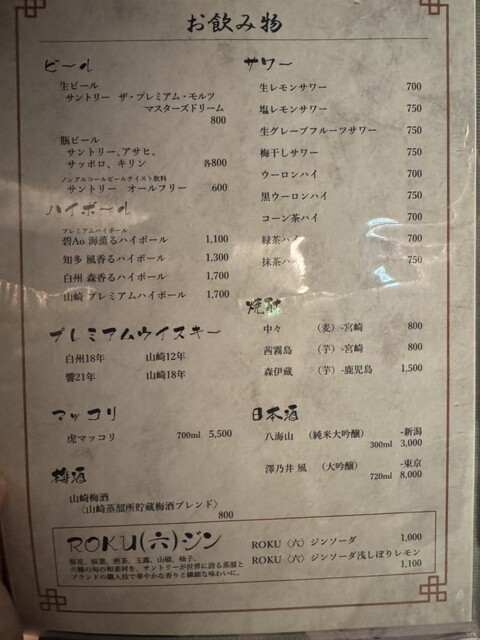 お飲み物
ビール
生ビール
サントリー ザ・プレミアム・モルツ
マスターズドリーム
800
瓶ビール
サントリー、アサヒ、
サッポロ、キリン 各800
ノンアルコールビールテイスト飲料
サントリー オールフリー 600
ハイボール
プレミアムハイボール
碧Ao 海薫るハイボール 1,100
知多 風香るハイボール 1,300
白州 森香るハイボール 1,700
山崎 プレミアムハイボール 1,700
プレミアムウイスキー
白州18年 山崎12年
響21年 山崎18年
マッコリ
虎マッコリ 700ml 5,500
梅酒
山崎梅酒
〈山崎蒸留所貯蔵梅酒ブレンド〉
800
サワー
生レモンサワー 700
塩レモンサワー 750
生グレープフルーツサワー 750
梅干しサワー 750
ウーロンハイ 700
黒ウーロンハイ 750
コーン茶ハイ 700
緑茶ハイ 700
抹茶ハイ 750
焼酎
中々 (麦)-宮崎 800
茜霧島 (芋)-宮崎 800
森伊蔵 (芋)-鹿児島 1,500
日本酒
八海山 (純米大吟醸) -新潟
300ml 3,000
澤乃井 凰 (大吟醸) -東京
720ml 8,000
ROKU(六)ジン
桜花、桜葉、煎茶、玉露、山椒、柚子。
六種の旬の和素材を、サントリーが世界に誇る蒸溜と
ブランドの職人技で華やかな香りと繊細な味わいに。
ROKU〈六〉ジンソーダ 1,000
ROKU〈六〉ジンソーダ浅しぼりレモン
1,100